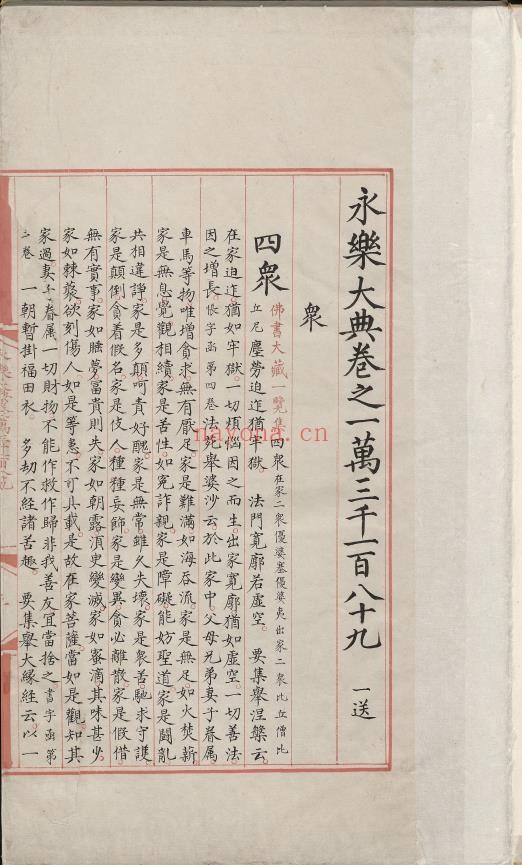 永樂大典卷之一萬三千一百八十九 一送
衆
四衆 佛書大藏一覽集四衆在家二衆優婆塞優婆夷出家二衆比丘僧比
丘尼塵勞迫迮猶牢獄 法門寬廓若虛空 要集舉涅槃云
在家迫迮猶如牢獄一切煩惱因之而生出家寬廓猶如虛空一切善法
因之增長恢字函第四卷法苑舉婆沙云於此家中父母兄弟妻子眷屬
車馬等物唯增貪求無有厭足家是難滿如海吞流家是無足如火焚薪
家是無息覺觀相續家是苦性如冤詐親家是障礙能妨聖道家是鬬亂
共相違諍家是多顛呵責好醜家是無常雖久失壞家是衆苦馳求守護
家是顛倒貪着假名家是伎人種種妄飾家是變異貪必離散家是假借
無有實事家如睡夢富貴則失家如朝露須臾變滅家如蜜滴其味甚少
家如棘䕺欲刻傷人如是等患不可具載是故在家菩薩當如是觀知其
家過妻子眷屬一切財物不能作救作歸非我善友宜當捨之書字函第
二卷 一朝暫掛福田衣 多劫不經諸苦趣 要集舉大緣經云以一
nayona.cn